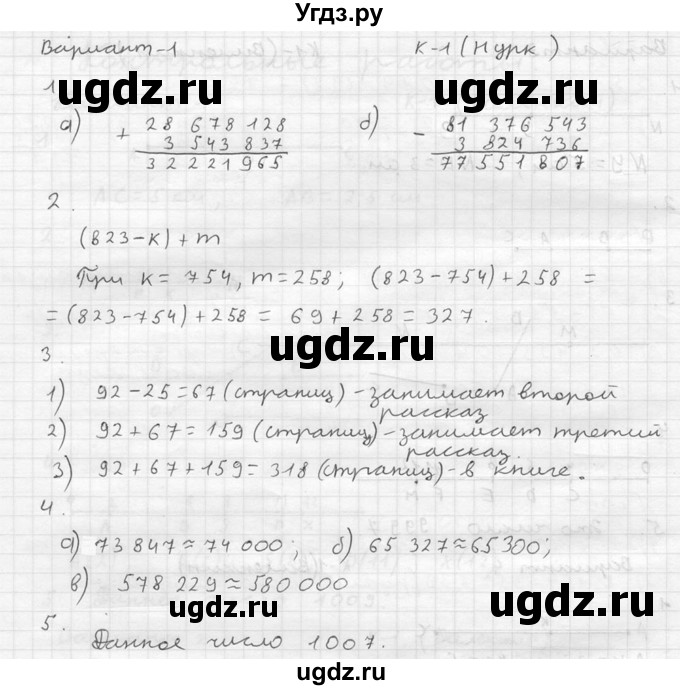 Угдз.ру
Вариант-1 К-1 (Нурк)
1.
ugdz.ru ugdz.ru
а) + 28 678 128 б) - 81 376 543
3 543 837 3 824 736
32 221 965 77 551 807
2.
(823-к)+m
При к= 754, m=258; (823-754)+258 =
=(823-754)+258 = 69+258=327.
ugdz.ru
3.
1) 92-25=67 (страниц)-занимает второй
рассказ
2) 92+67=159 (страниц)-занимает третий
рассказ.
3) 92+67+159=318 (страниц)-в книге.
4.
а) 73 847≈74 000; б) 65 327≈65300;
в) 578 229≈580 000
ugdz.ru ugdz.ru
5.
Данное число 1007.
ugdz.ru